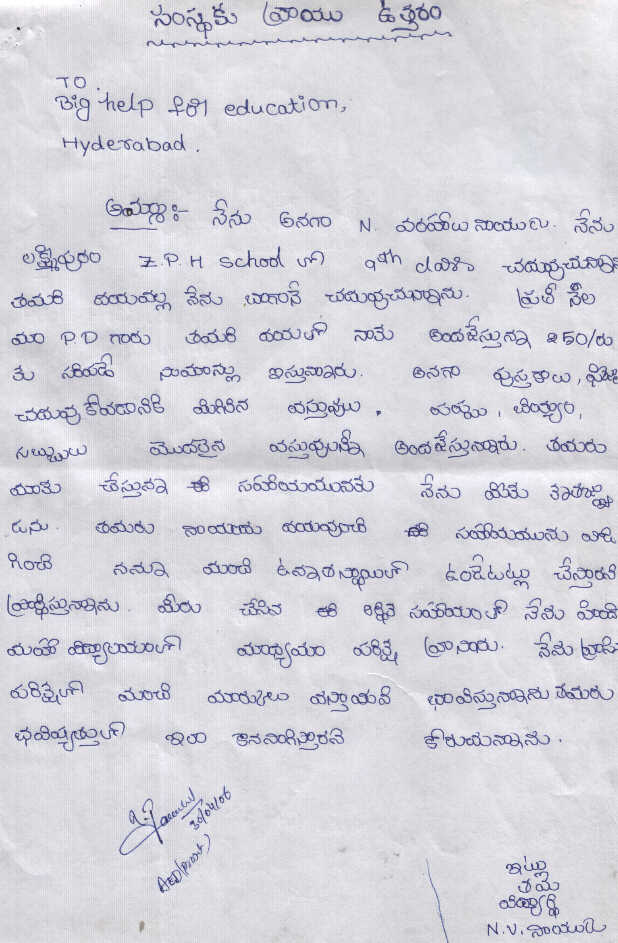 సంస్థకు వ్రాయు ఉత్తరం
TO.
Big help for education,
Hyderabad.
అయ్యా:- నేను అనగా N. వరహాలు నాయుడు. నేను
లక్ష్మీపురం Z.P.H school లో 9th class చదువుచున్నాను
తమరి దయవల్ల నేను బాగానే చదువుచున్నాను. ప్రతి నెల
మా PD గారు తమరి దయతో నాకు అందజేస్తున్న 250/రు
కు సరిపడే సామాన్లు ఇస్తున్నారు. అనగా పుస్తకాలు,
చదువు కోవడానికి మిగిలిన వస్తువులు, పప్పు, బియ్యం,
సబ్బులు మొదలైన వస్తువులన్నీ అందజేస్తున్నారు. తమరు
మాకు చేస్తున్న ఈ సహాయమునకు నేను మీకు కృతజ్ఞు
డను. తమరు నాయందు దయవుంచి ఈ సహాయమును
గించి నన్ను మంచి ఉన్నతస్థాయిలో ఉండేటట్లు చేస్తారని
ప్రార్థిస్తున్నాను. మీరు చేసిన ఈ ఆర్థిక సహాయంతో నేను హిందీ
మహా విద్యాలయంలో మాధ్యమం పరీక్ష వ్రాసాను. నేను వ్రాసిన
పరీక్షలో మంచి మార్కులు వస్తాయని భావిస్తున్నాను తమరు
భవిష్యత్తులో ఇలా కొనసాగిస్తారని కోరుచున్నాను.
30/04/06
ఇట్లు
తమ
విద్యార్థి
N.V. నాయుడు